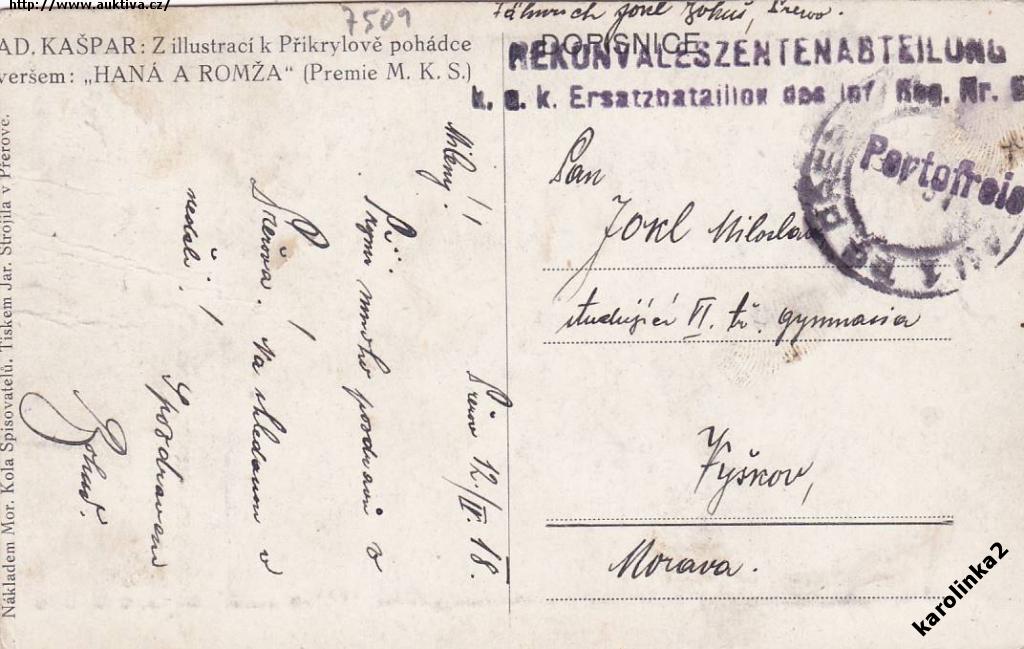 http://www.auktiva.cz/
7509
AD. KAŠPAR: Z illustrací k Přikrylově pohádce
veršem: „HANÁ A ROMŽA“ (Premie M. K. S.)
Nákladem Mor. Kola Spisovatelů. Tiskem Jar. Strojila v Přerově.
Fähnrich Jokl Bohuš, Přerov.
DOPISNICE
REKONVALESZENTENABTEILUNG
k. u. k. Ersatzbataillon des Inf. Reg. Nr.
Portofrei
Pan
Jokl Miloslav
studující VI. tř. gymnasia
Vyškov,
Morava.
Přerov 12./IV. 18.
Milený!
Přijmi mnoho pozdravů z
Přerova. Na shledanou v
neděli!
S pozdravem
Bohuš.
karolinka2